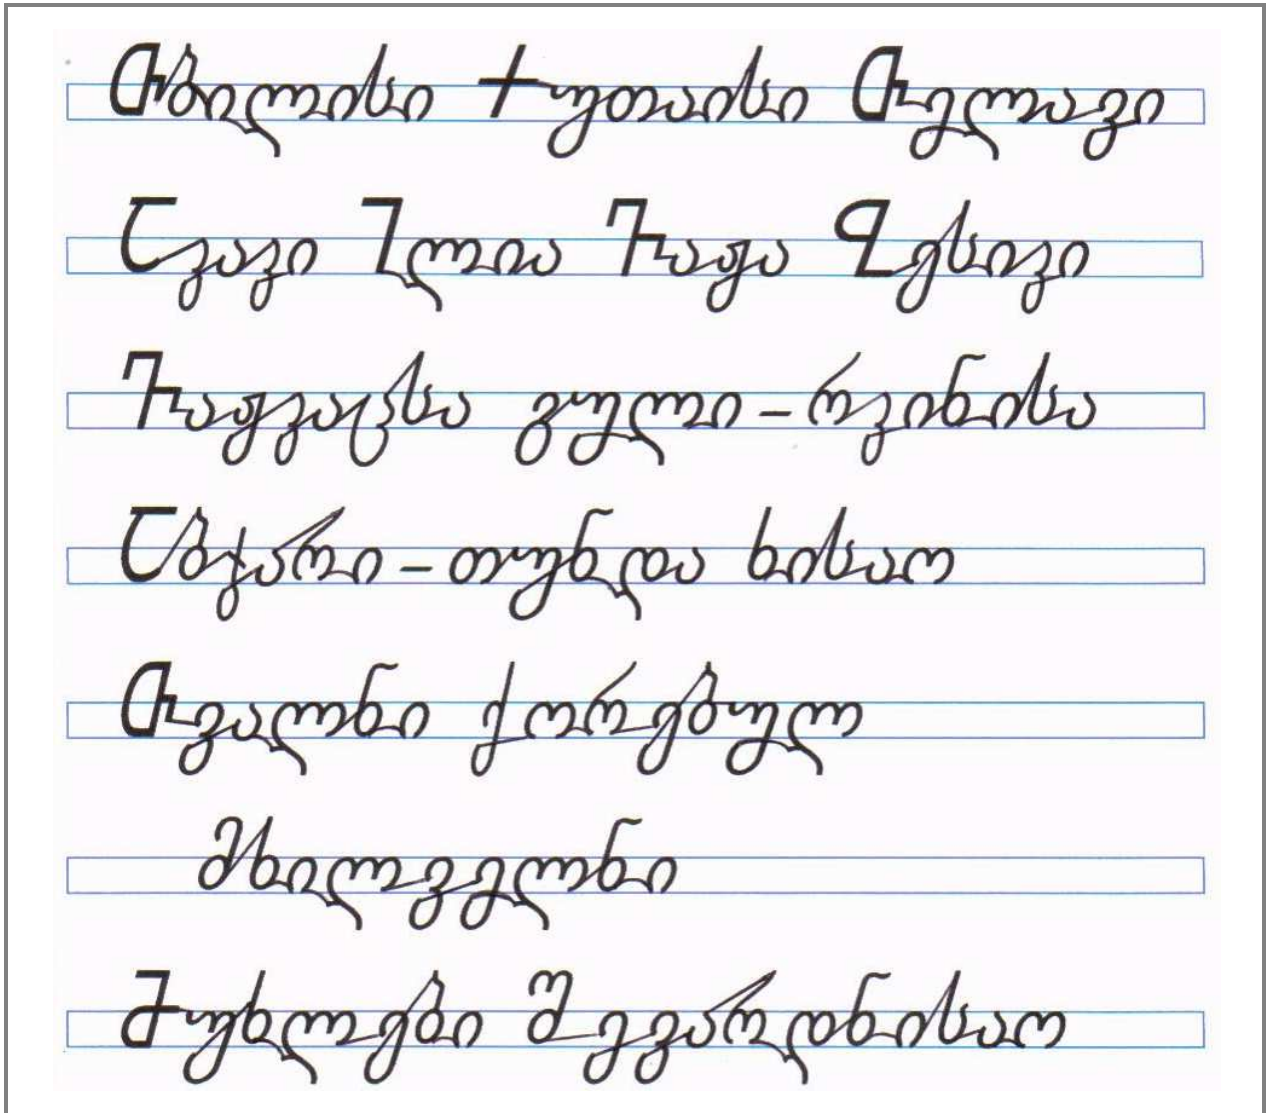 თბილისი ქუთაისი თელავი
აკაკი ილია ვაჟა ბესიკი
ვაჟკაცსა გული – რკინისა
აბჯარი – თუნდა ხისაო
თვალნი ქორებულ
მხილველნი
მუხლები შევარდნისაო